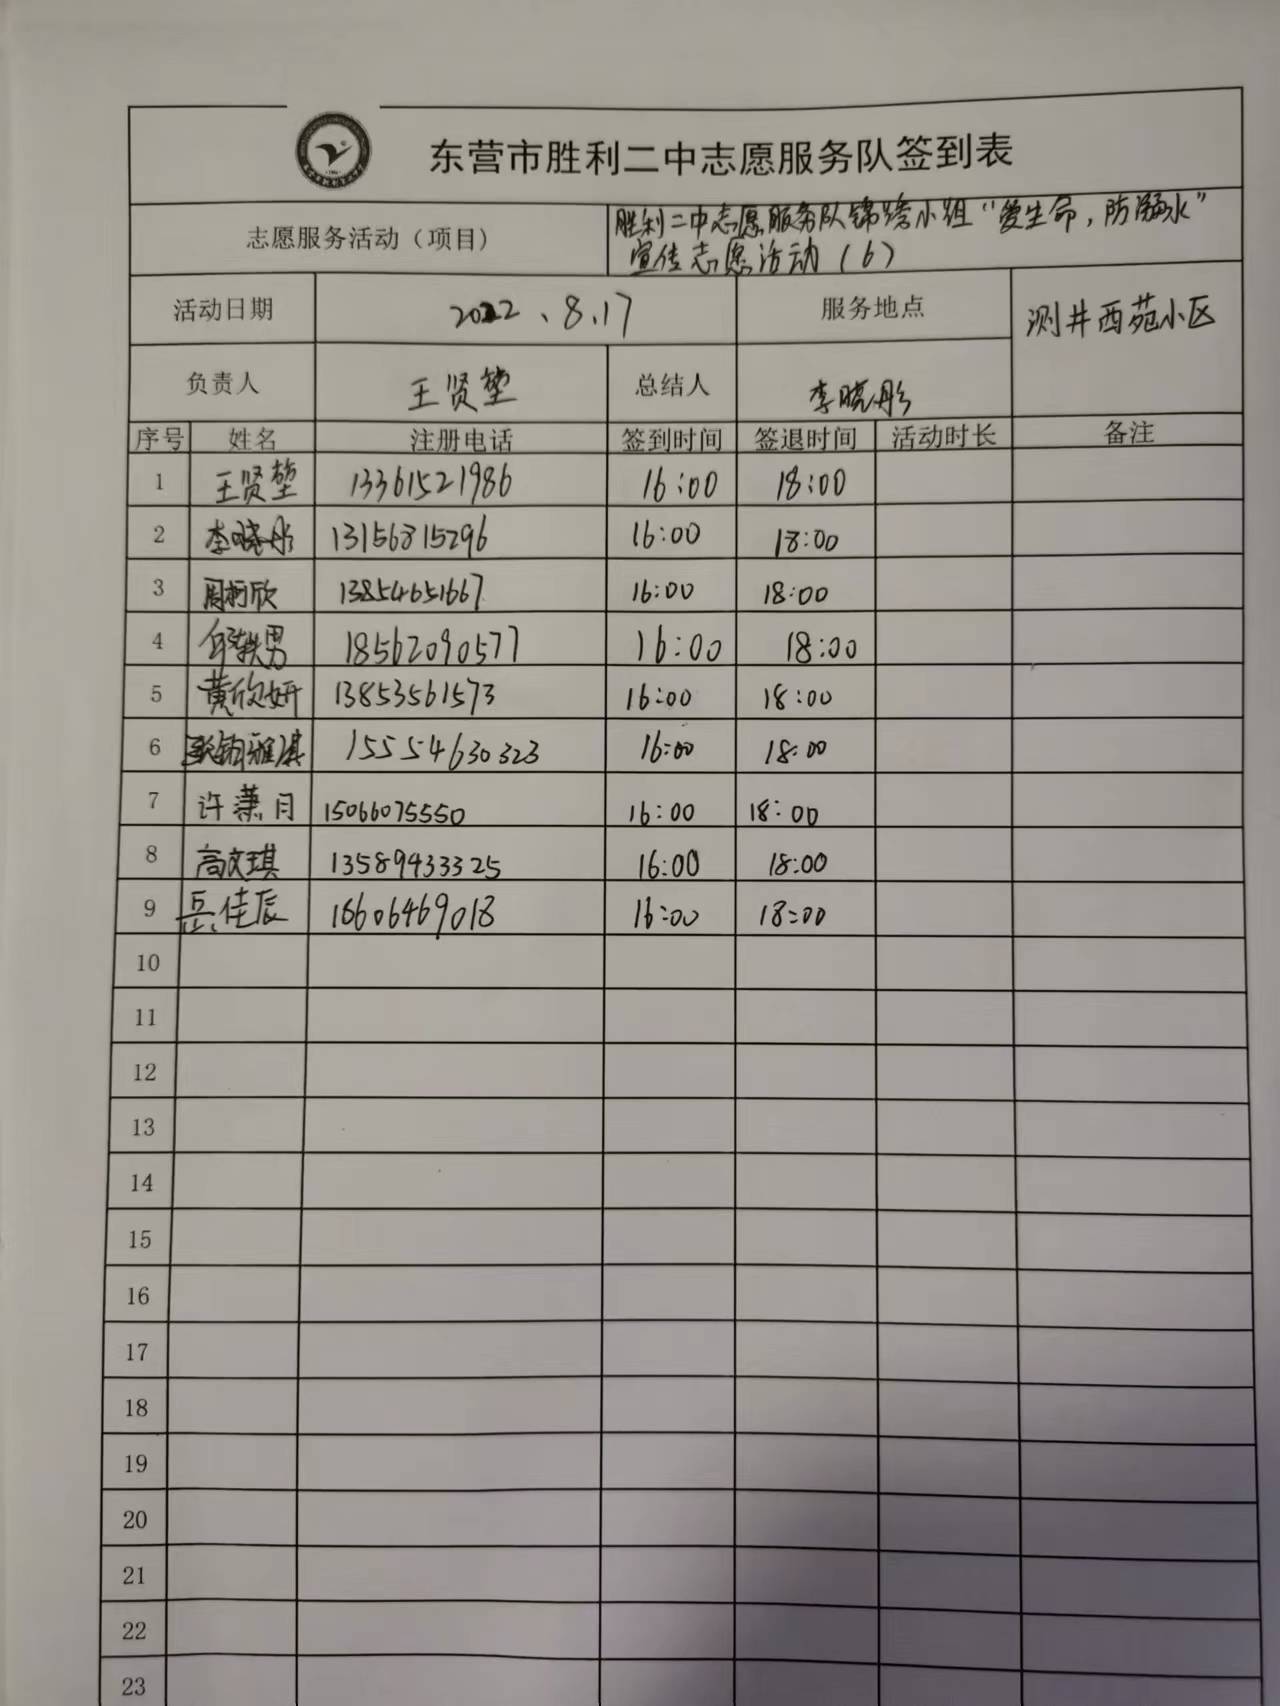 东营市胜利二中志愿服务队签到表
志愿服务活动（项目） 胜利二中志愿服务队锦绣小组“爱生命，防溺水”
宣传志愿活动（6）
活动日期 2022、8.17 服务地点 测井西苑小区
负责人 王贤堃 总结人 李晓彤
序号 姓名 注册电话 签到时间 签退时间 活动时长 备注
1 王贤堃 13361521986 16:00 18:00
2 李晓彤 13156815296 16:00 18:00
3 周柯欣 13854651667 16:00 18:00
4 男 18562090577 16:00 18:00
5 黄欣妍 13853561573 16:00 18:00
6 雅淇 15554630323 16:00 18:00
7 许萧月 15066075550 16:00 18:00
8 高文琪 13589433325 16:00 18:00
9 岳佳辰 16606469018 16:00 18:00
10
11
12
13
14
15
16
17
18
19
20
21
22
23